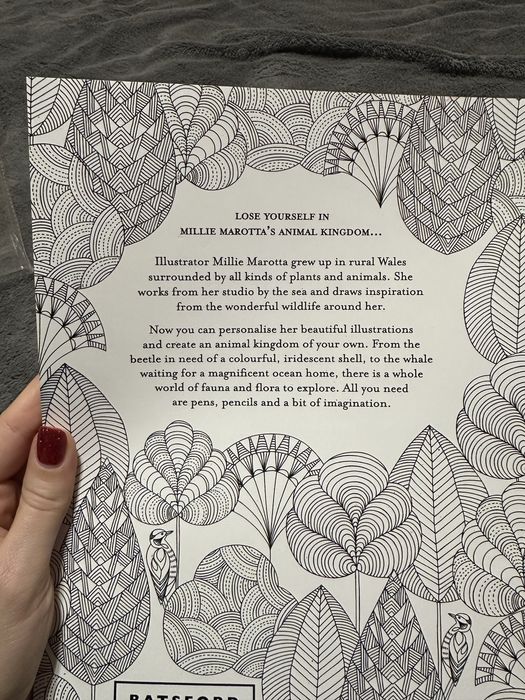 LOSE YOURSELF IN
MILLIE MAROTTA'S ANIMAL KINGDOM...
Illustrator Millie Marotta grew up in rural Wales
surrounded by all kinds of plants and animals. She
works from her studio by the sea and draws inspiration
from the wonderful wildlife around her.
Now you can personalise her beautiful illustrations
and create an animal kingdom of your own. From the
beetle in need of a colourful, iridescent shell, to the whale
waiting for a magnificent ocean home, there is a whole
world of fauna and flora to explore. All you need
are pens, pencils and a bit of imagination.
BATSFORD